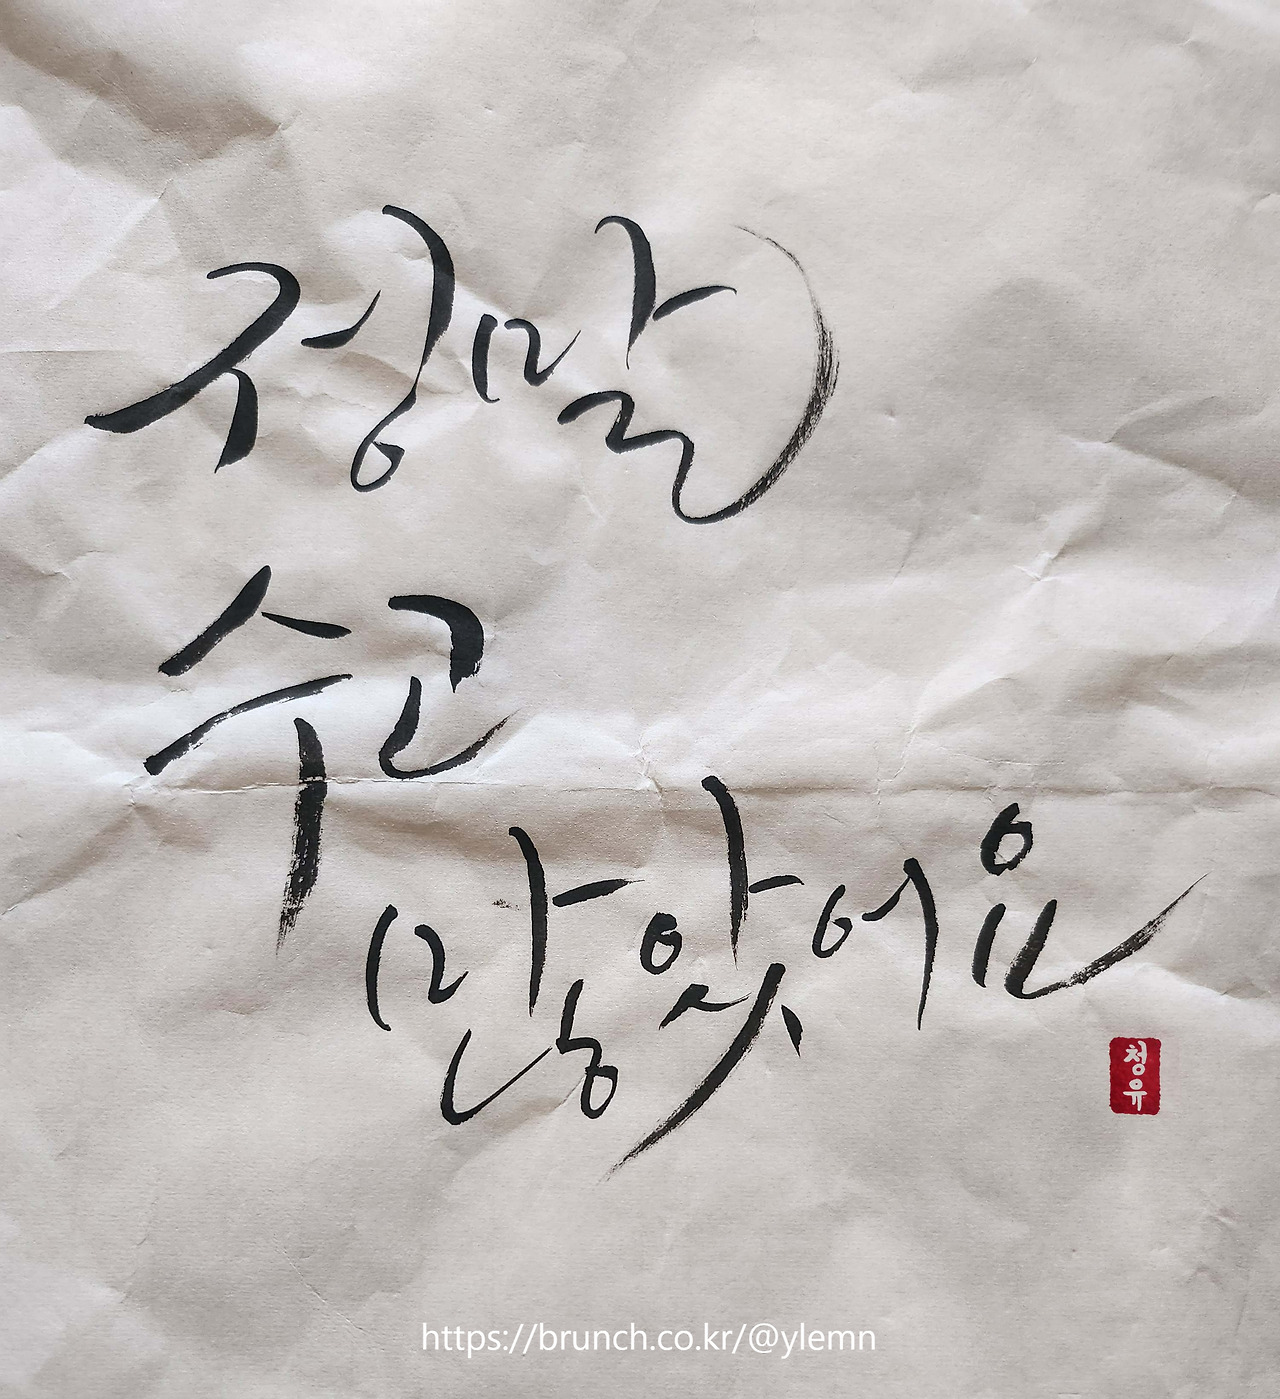 정말
수고
많았어요
청유
https://brunch.co.kr/@ylemn